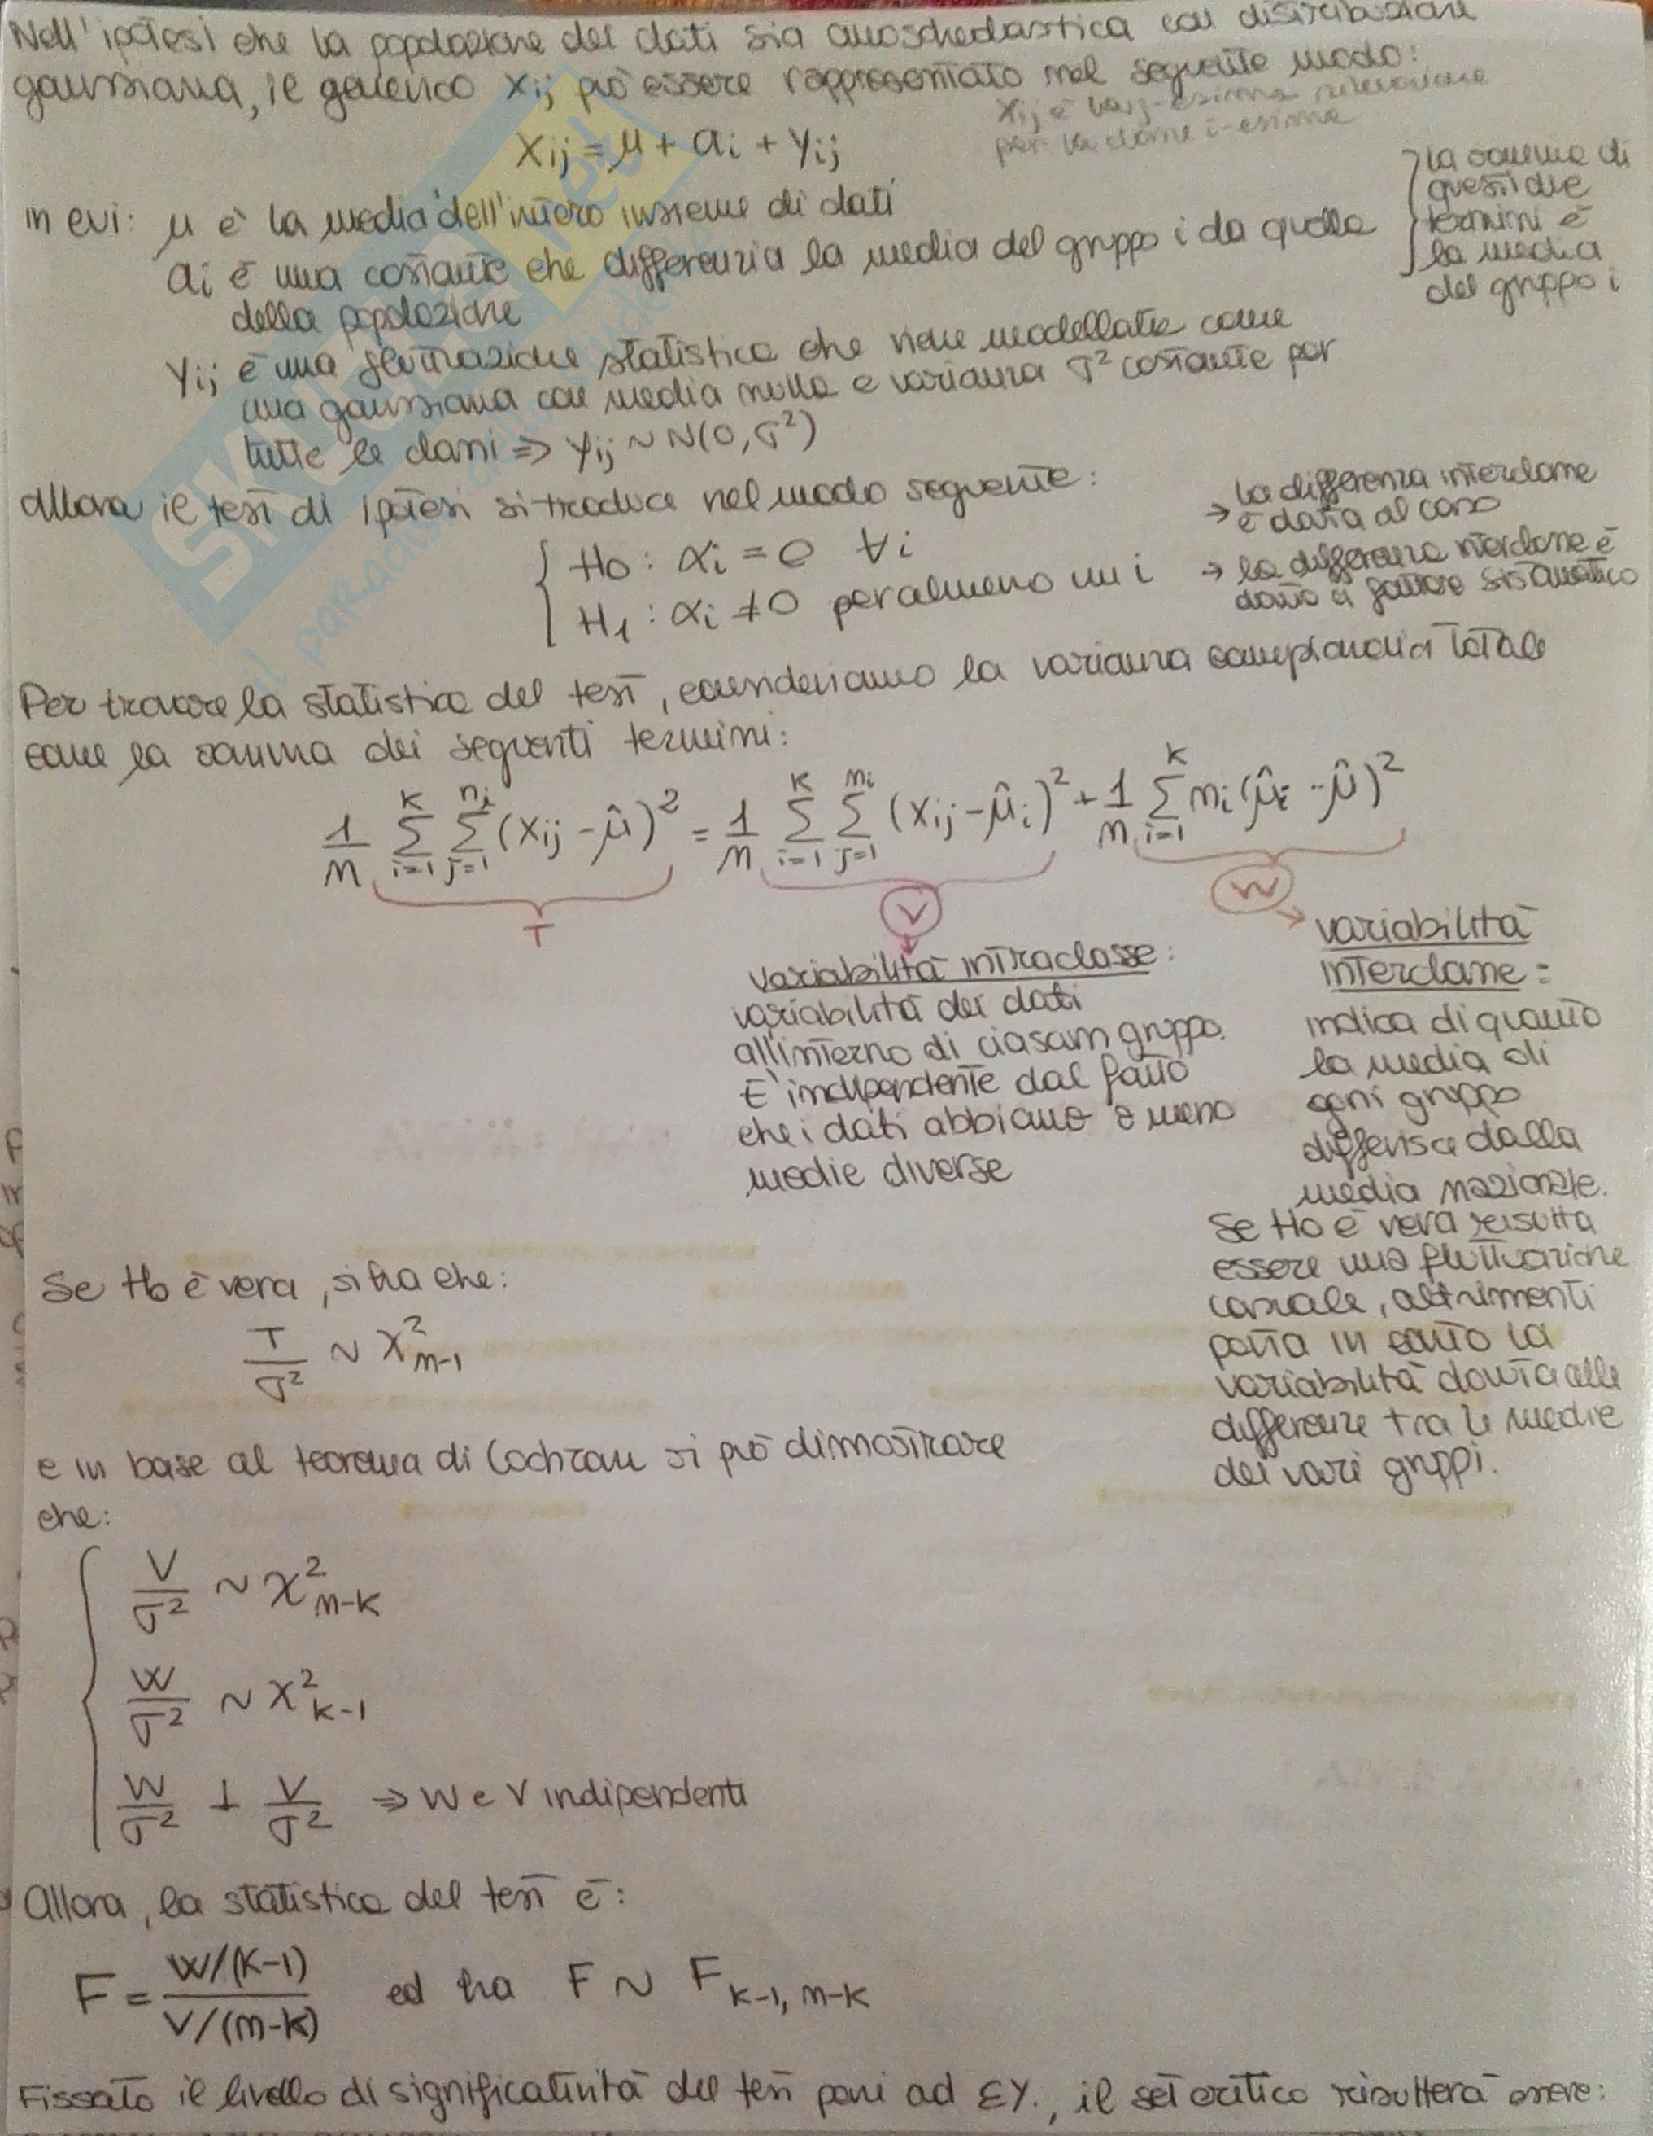 Nell'ipotesi che la popolazione dei dati sia omoschedastica con distribuzione
gaussiana, il generico xij può essere rappresentato nel seguente modo:
xij è la j-esima rilevazione
per la classe i-esima
xij = μ + ai + yij
in cui: μ è la media dell'intero insieme di dati
ai è una costante che differenzia la media del gruppo i da quella
della popolazione
la somma di
questi due
termini è
la media
del gruppo i
yij è una fluttuazione statistica che viene modellata come
una gaussiana con media nulla e varianza σ² costante per
tutte le classi ⇒ yij ~ N(0,σ²)
allora il test di ipotesi si traduce nel modo seguente:
H0: αi = 0 ∀i
→ la differenza interclasse
è data al caso
H1: αi ≠ 0 per almeno un i
→ la differenza interclasse è
data a fattore sistematico
Per trovare la statistica del test, consideriamo la varianza campionaria totale
come la somma dei seguenti termini:
1/n Σ(i=1..k) Σ(j=1..ni) (xij - μ̂)² = 1/n Σ(i=1..k) Σ(j=1..ni) (xij - μ̂i)² + 1/n Σ(i=1..k) ni(μ̂i - μ̂)²
T V W
variabilità intraclasse:
variabilità dei dati
all'interno di ciascun gruppo.
E' indipendente dal fatto
che i dati abbiano o meno
medie diverse
variabilità
interclasse:
indica di quanto
la media di
ogni gruppo
differisce dalla
media nazionale.
Se H0 è vera risulta
essere una fluttuazione
casuale, altrimenti
porta in conto la
variabilità dovuta alle
differenze tra le medie
dei vari gruppi.
Se H0 è vera, si ha che:
T/σ² ~ χ²n-1
e in base al teorema di Cochran si può dimostrare
che:
V/σ² ~ χ²n-k
W/σ² ~ χ²k-1
W/σ² ⊥ V/σ² ⇒ W e V indipendenti
Allora, la statistica del test è:
F = W/(k-1) / V/(n-k) ed ha F ~ Fk-1, n-k
Fissato il livello di significatività del test pari ad ε%, il set critico risulterà essere:
SKUOLA.net